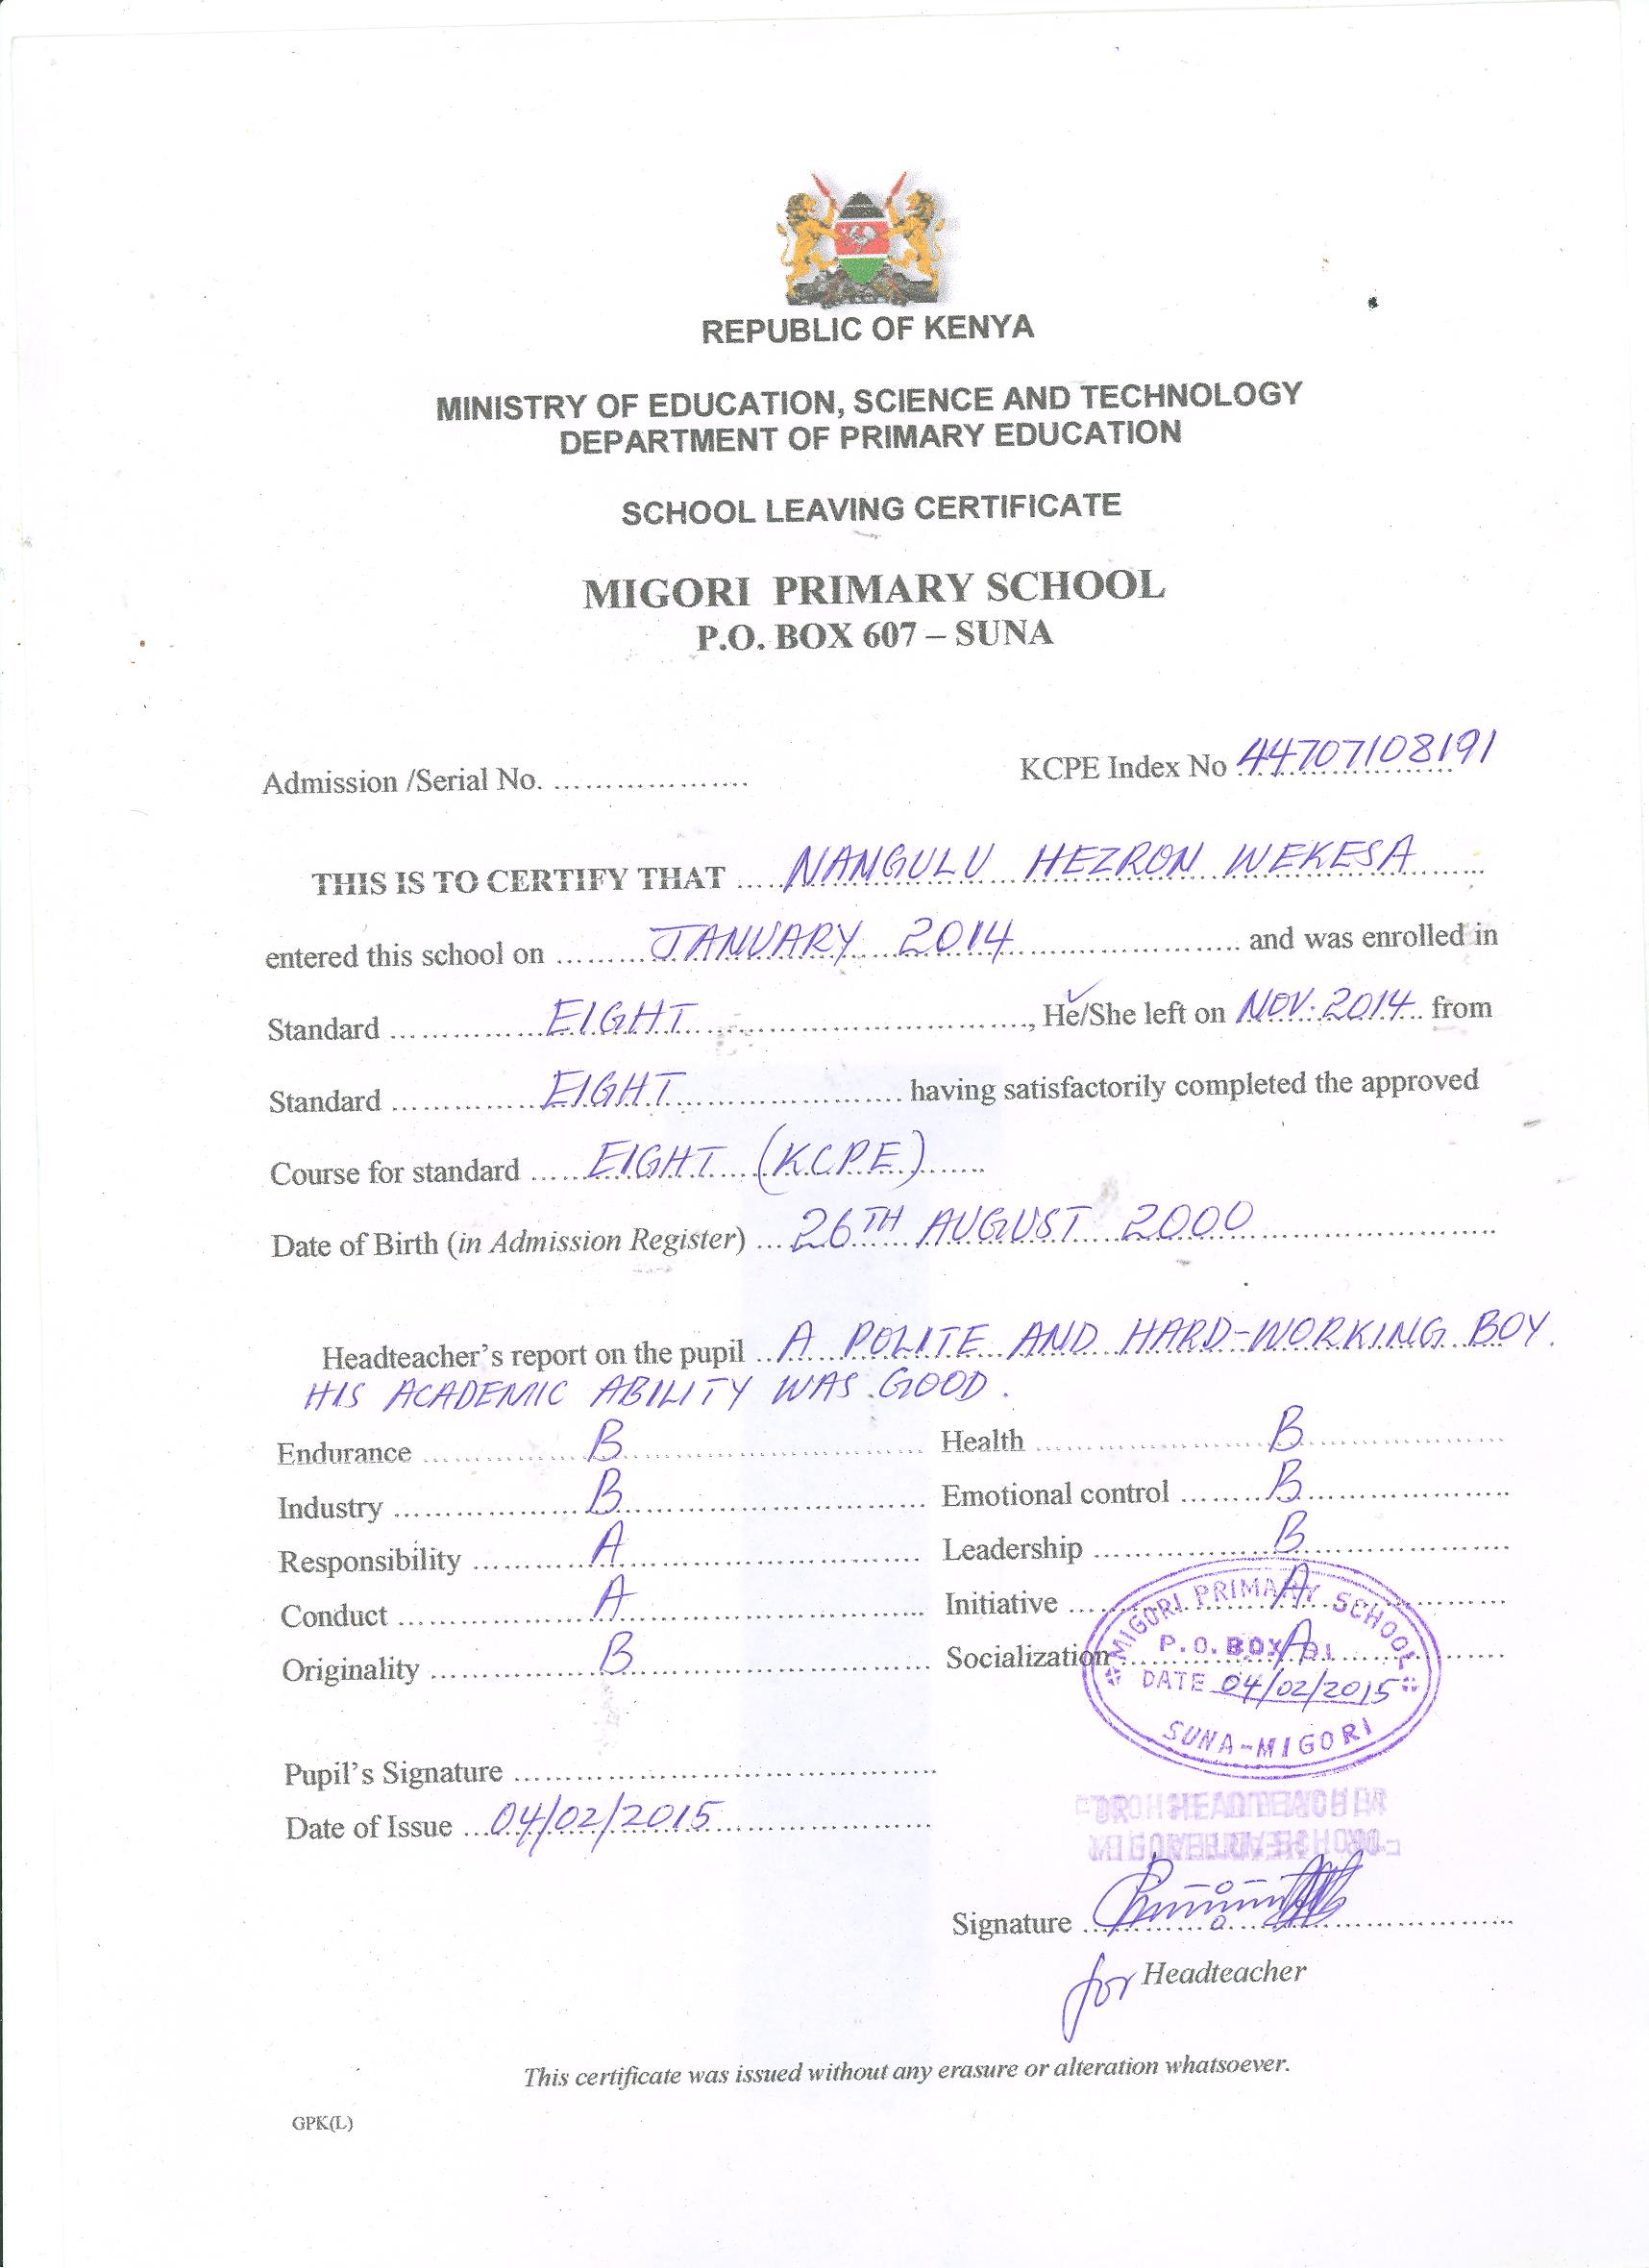 REPUBLIC OF KENYA
MINISTRY OF EDUCATION, SCIENCE AND TECHNOLOGY
DEPARTMENT OF PRIMARY EDUCATION
SCHOOL LEAVING CERTIFICATE
MIGORI PRIMARY SCHOOL
P.O. BOX 607 – SUNA
Admission /Serial No. .................... KCPE Index No 44707108191
THIS IS TO CERTIFY THAT NANGULU HEZRON WEKESA
entered this school on JANUARY 2014 and was enrolled in
Standard EIGHT, He/She left on NOV. 2014 from
Standard EIGHT having satisfactorily completed the approved
Course for standard EIGHT (KCPE)
Date of Birth (in Admission Register) 26TH AUGUST 2000
Headteacher's report on the pupil A POLITE AND HARD-WORKING BOY.
HIS ACADEMIC ABILITY WAS GOOD.
Endurance B Health B
Industry B Emotional control B
Responsibility A Leadership B
Conduct A Initiative A
Originality B Socialization A
MIGORI PRIMARY SCHOOL
P.O. BOX
DATE 04/02/2015
SUNA-MIGORI
Pupil's Signature ....................
Date of Issue 04/02/2015
Signature
for Headteacher
This certificate was issued without any erasure or alteration whatsoever.
GPK(L)